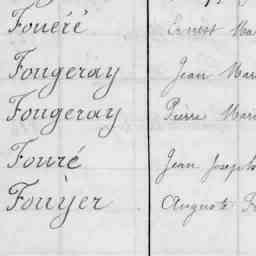 Foucré Ernest Ma
Fougeray Jean Mari
Fougeray Pierre Mari
Fouré Jean Joseph
Fouyer Auguste F